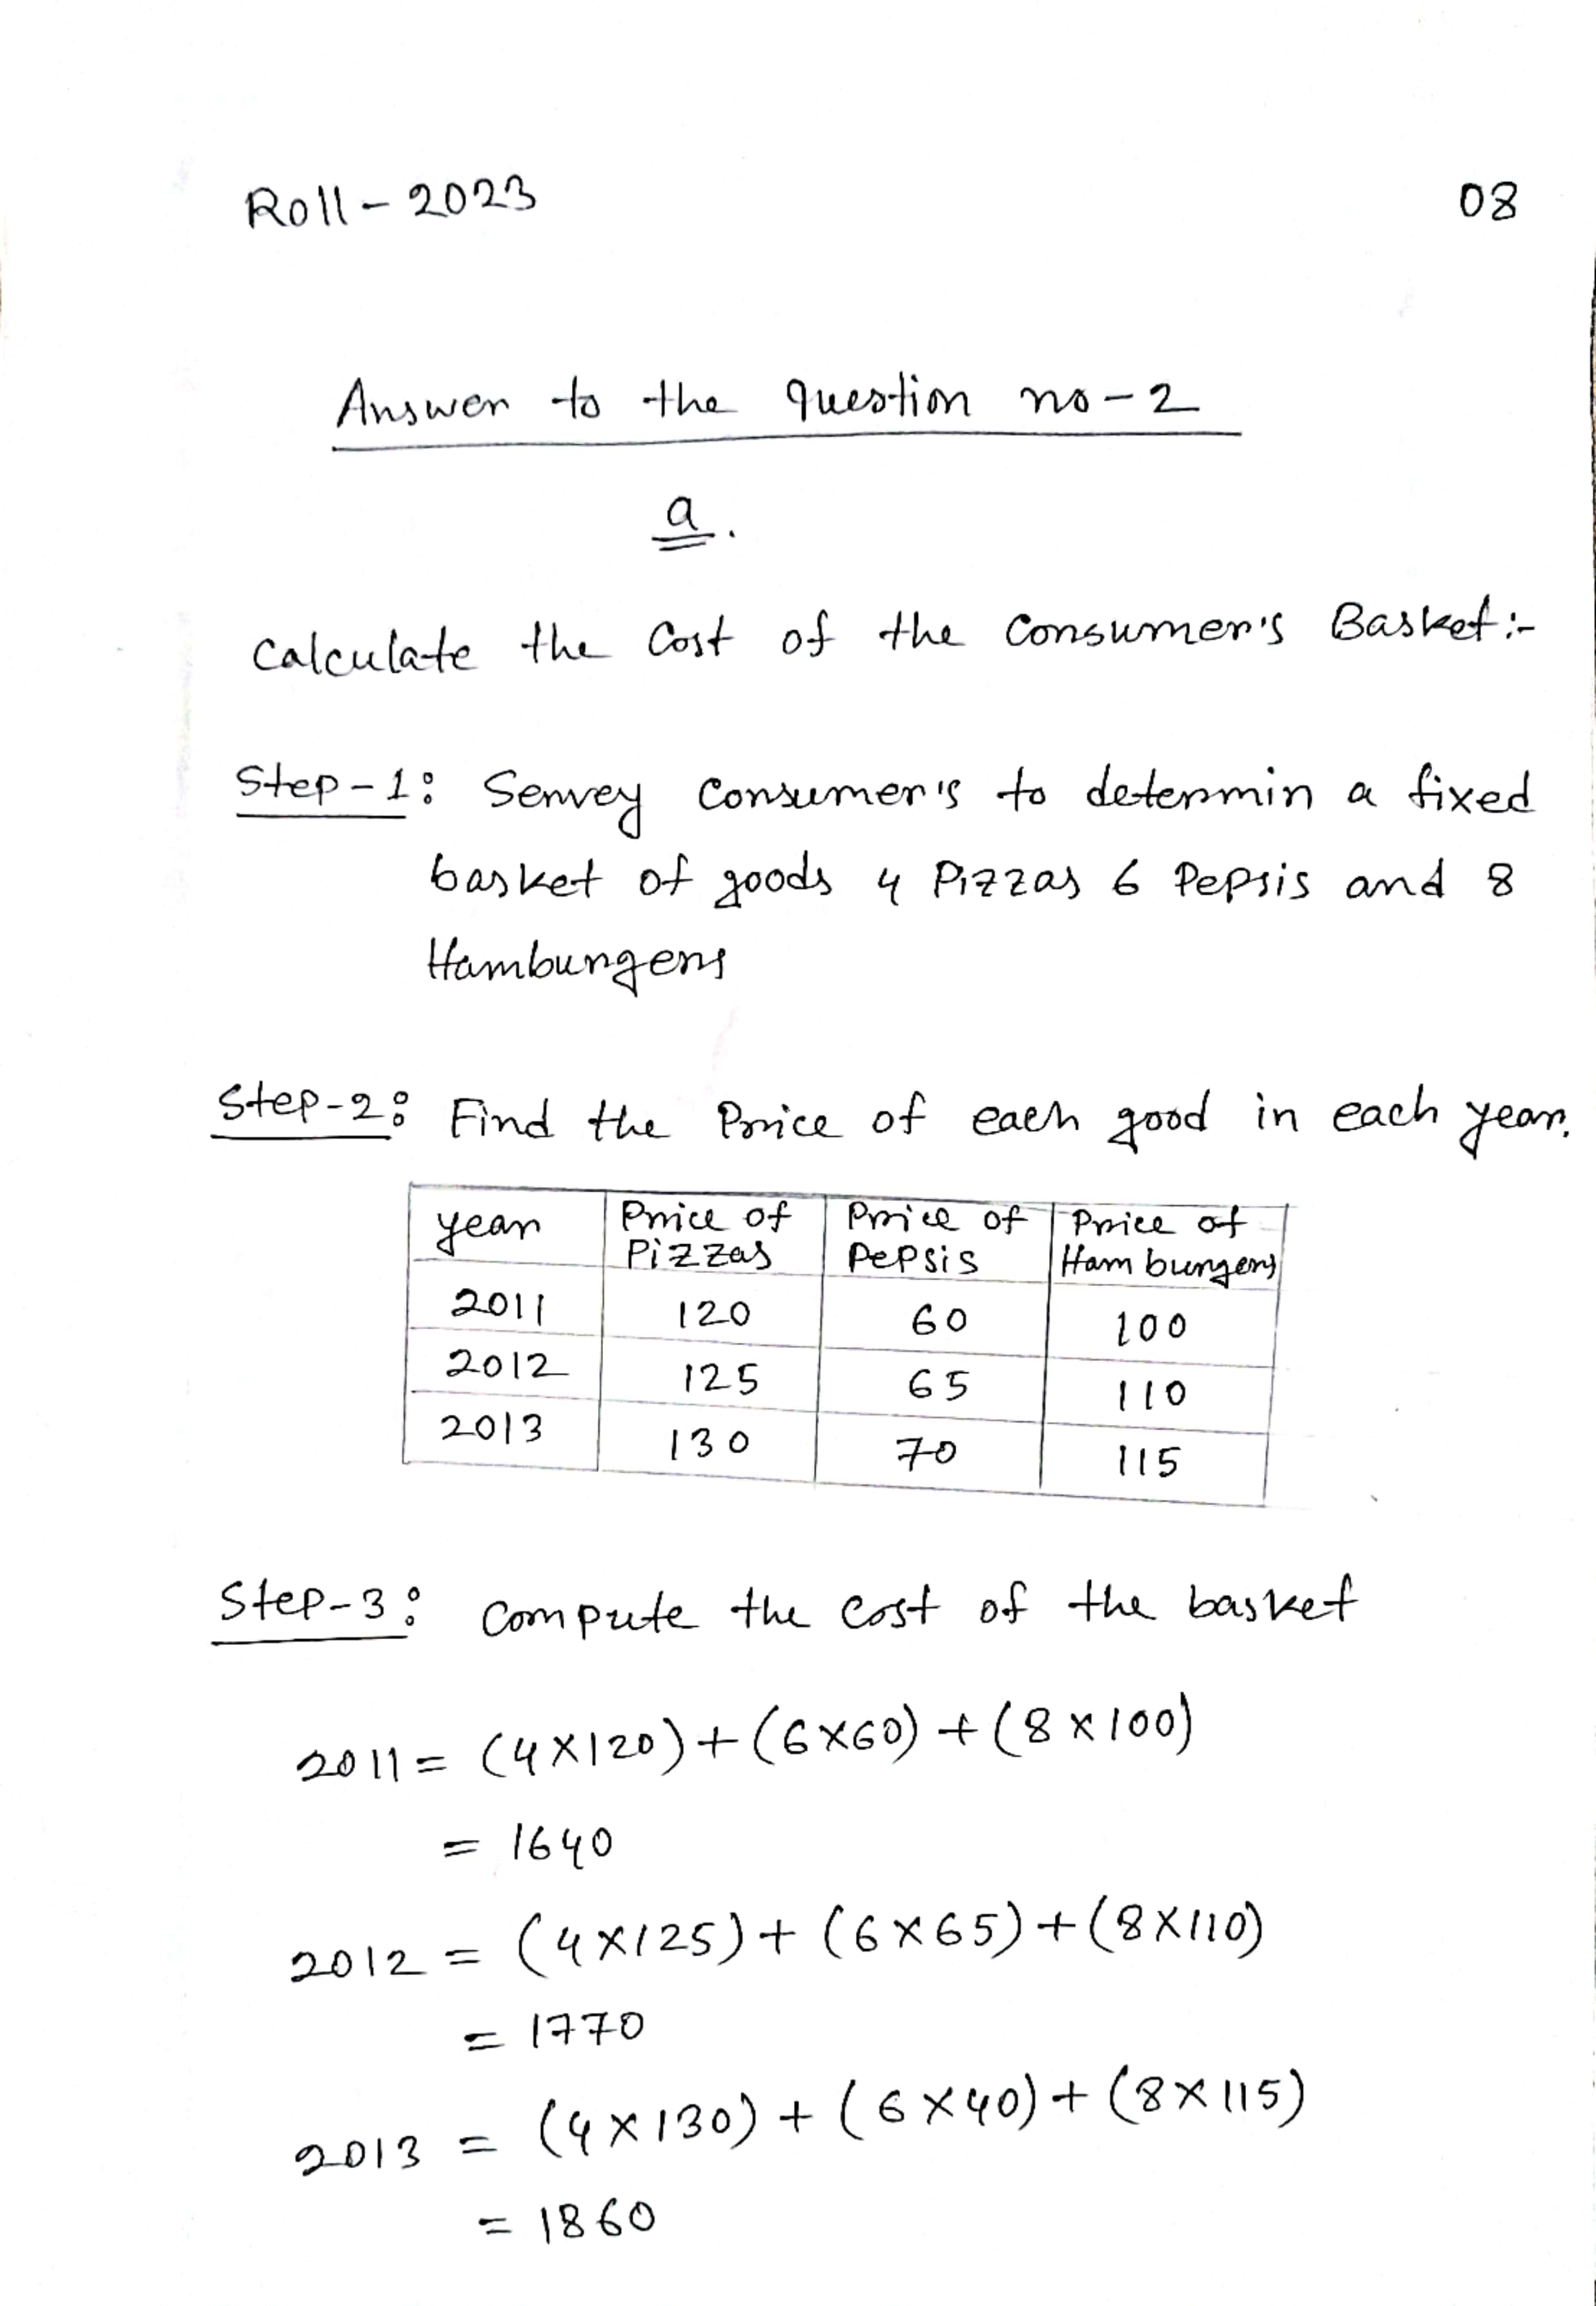 Roll - 2023
08
Answer to the question no - 2
a.
Calculate the Cost of the Consumer's Basket :-
Step - 1: Servey Consumer's to determin a fixed
basket of goods 4 Pizzas 6 Pepsis and 8
Hamburgers
Step-2: Find the Price of each good in each year.
year | Price of Pizzas | Price of Pepsis | Price of Hamburgers
2011 | 120 | 60 | 100
2012 | 125 | 65 | 110
2013 | 130 | 70 | 115
Step-3: Compute the Cost of the basket
2011 = (4×120) + (6×60) + (8×100)
= 1640
2012 = (4×125) + (6×65) + (8×110)
= 1770
2013 = (4×130) + (6×40) + (8×115)
= 1860